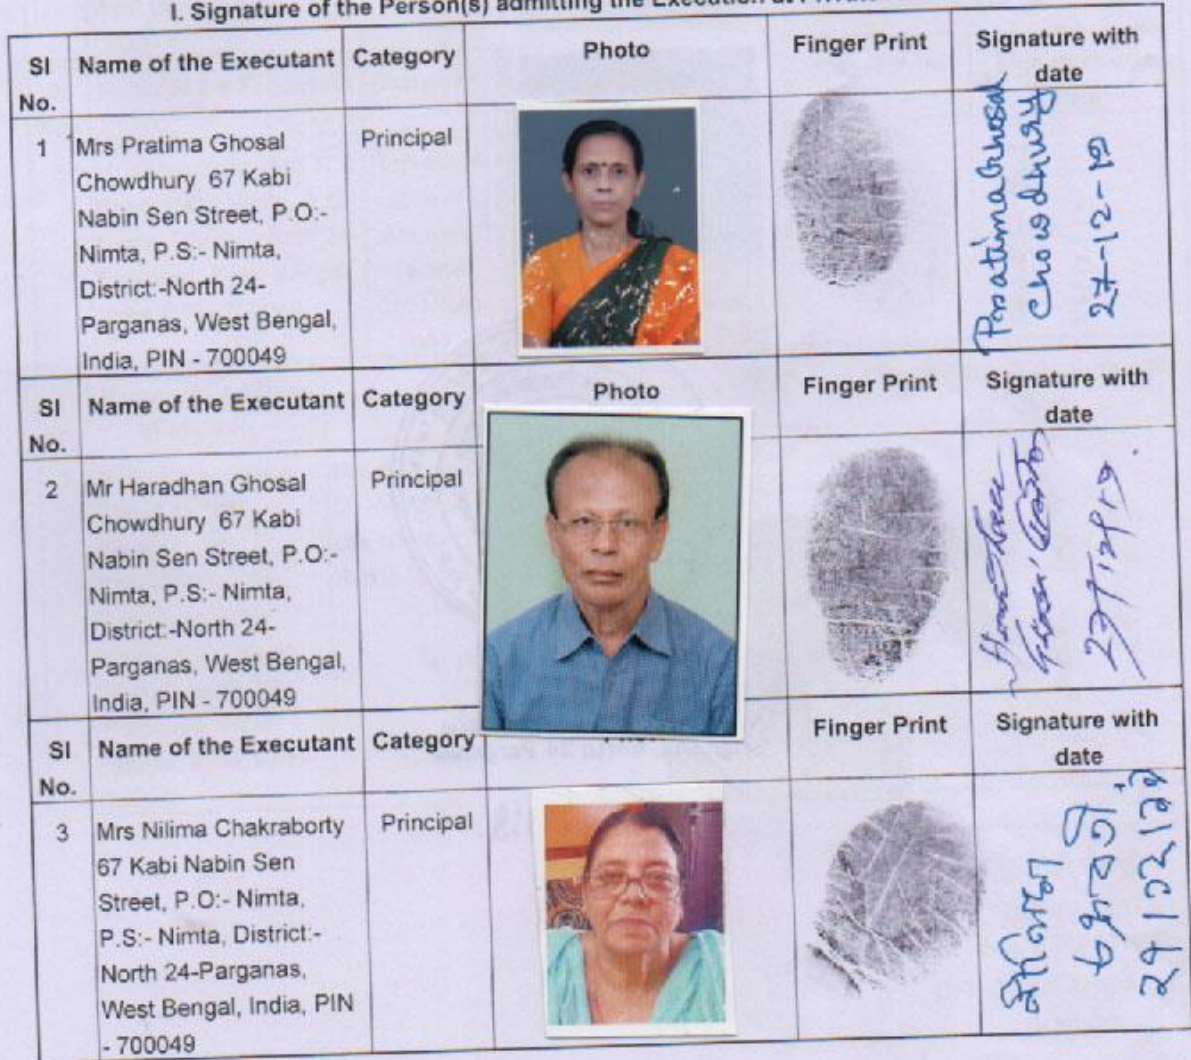 I. Signature of the Person(s) admitting the Execution
Sl No.
Name of the Executant
Category
Photo
Finger Print
Signature with date
1
Mrs Pratima Ghosal
Chowdhury 67 Kabi
Nabin Sen Street, P.O:-
Nimta, P.S:- Nimta,
District:-North 24-
Parganas, West Bengal,
India, PIN - 700049
Principal
Pratima Ghosal
Chowdhury
27-12-19
Sl No.
Name of the Executant
Category
Photo
Finger Print
Signature with date
2
Mr Haradhan Ghosal
Chowdhury 67 Kabi
Nabin Sen Street, P.O:-
Nimta, P.S:- Nimta,
District:-North 24-
Parganas, West Bengal,
India, PIN - 700049
Principal
27/12/19.
Sl No.
Name of the Executant
Category
Finger Print
Signature with date
3
Mrs Nilima Chakraborty
67 Kabi Nabin Sen
Street, P.O:- Nimta,
P.S:- Nimta, District:-
North 24-Parganas,
West Bengal, India, PIN
- 700049
Principal
নীলিমা
চক্রবর্তী
২৭।১২।১৯